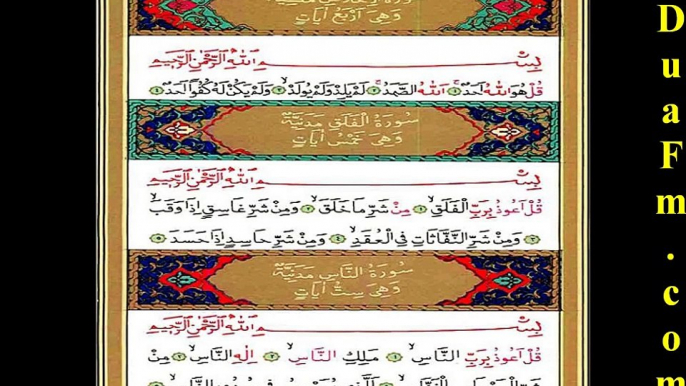 وَهِىَ اَرْبَعُ اٰيَاتٍ
بِسْمِ اللّٰهِ الرَّحْمٰنِ الرَّحِيمِ
قُلْ هُوَ اللّٰهُ اَحَدٌ ۚ ١ اَللّٰهُ الصَّمَدُ ۚ ٢ لَمْ يَلِدْ وَلَمْ يُولَدْ ۙ ٣ وَلَمْ يَكُنْ لَهُ كُفُوًا اَحَدٌ ٤
سُورَةُ الْفَلَقِ مَدَنِيَّةٌ
وَهِىَ خَمْسُ اٰيَاتٍ
بِسْمِ اللّٰهِ الرَّحْمٰنِ الرَّحِيمِ
قُلْ اَعُوذُ بِرَبِّ الْفَلَقِ ۙ ١ مِنْ شَرِّ مَا خَلَقَ ۙ ٢ وَمِنْ شَرِّ غَاسِقٍ اِذَا وَقَبَ ۙ
٣ وَمِنْ شَرِّ النَّفَّاثَاتِ فِى الْعُقَدِ ۙ ٤ وَمِنْ شَرِّ حَاسِدٍ اِذَا حَسَدَ ٥
سُورَةُ النَّاسِ مَدَنِيَّةٌ
وَهِىَ سِتُّ اٰيَاتٍ
بِسْمِ اللّٰهِ الرَّحْمٰنِ الرَّحِيمِ
قُلْ اَعُوذُ بِرَبِّ النَّاسِ ۙ ١ مَلِكِ النَّاسِ ۙ ٢ اِلٰهِ النَّاسِ ۙ ٣ مِنْ
D
u
a
F
m
.
c
o
m